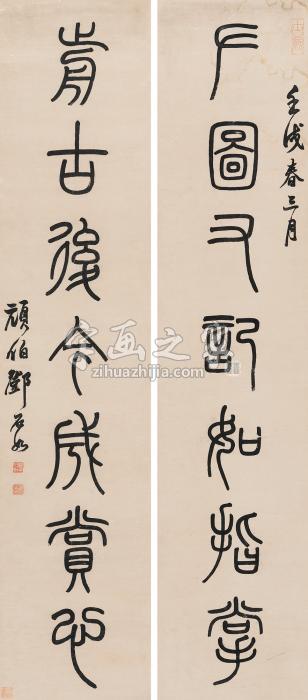 壬戌春三月
左圖又記如指掌
前古後今成賞心
頑伯鄧石如
字画之家
zihuazhijia.com